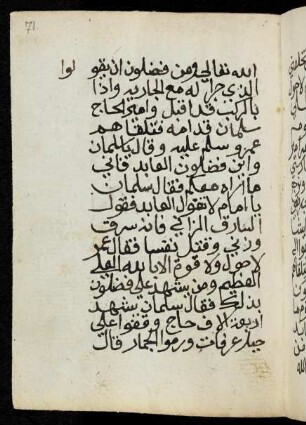 71
الله تعالي ومن فضلون ان يقو لوا
الذي جرا له مع الجاريه واذا
بالركب قد اقبل وامير الحاج
سلمان قدامه فتلقاهم
عمر وسلم عليه وقال ياسلمان
واين فضلون العابد فاني
ما اراه معكم فقال سلمان
يا امام لا تقول العابد فقول
السارق الزاني فانه سرق
وزني وقتل نفسا فقال عمر
لا حول ولا قوة الا بالله العلي
العظيم ومن يشهد علي فضلون
بذلك فقال سلمان يشهد
اربعة الاف حاج وقفوا علي
جبل عرفات ورموا الجمار قال